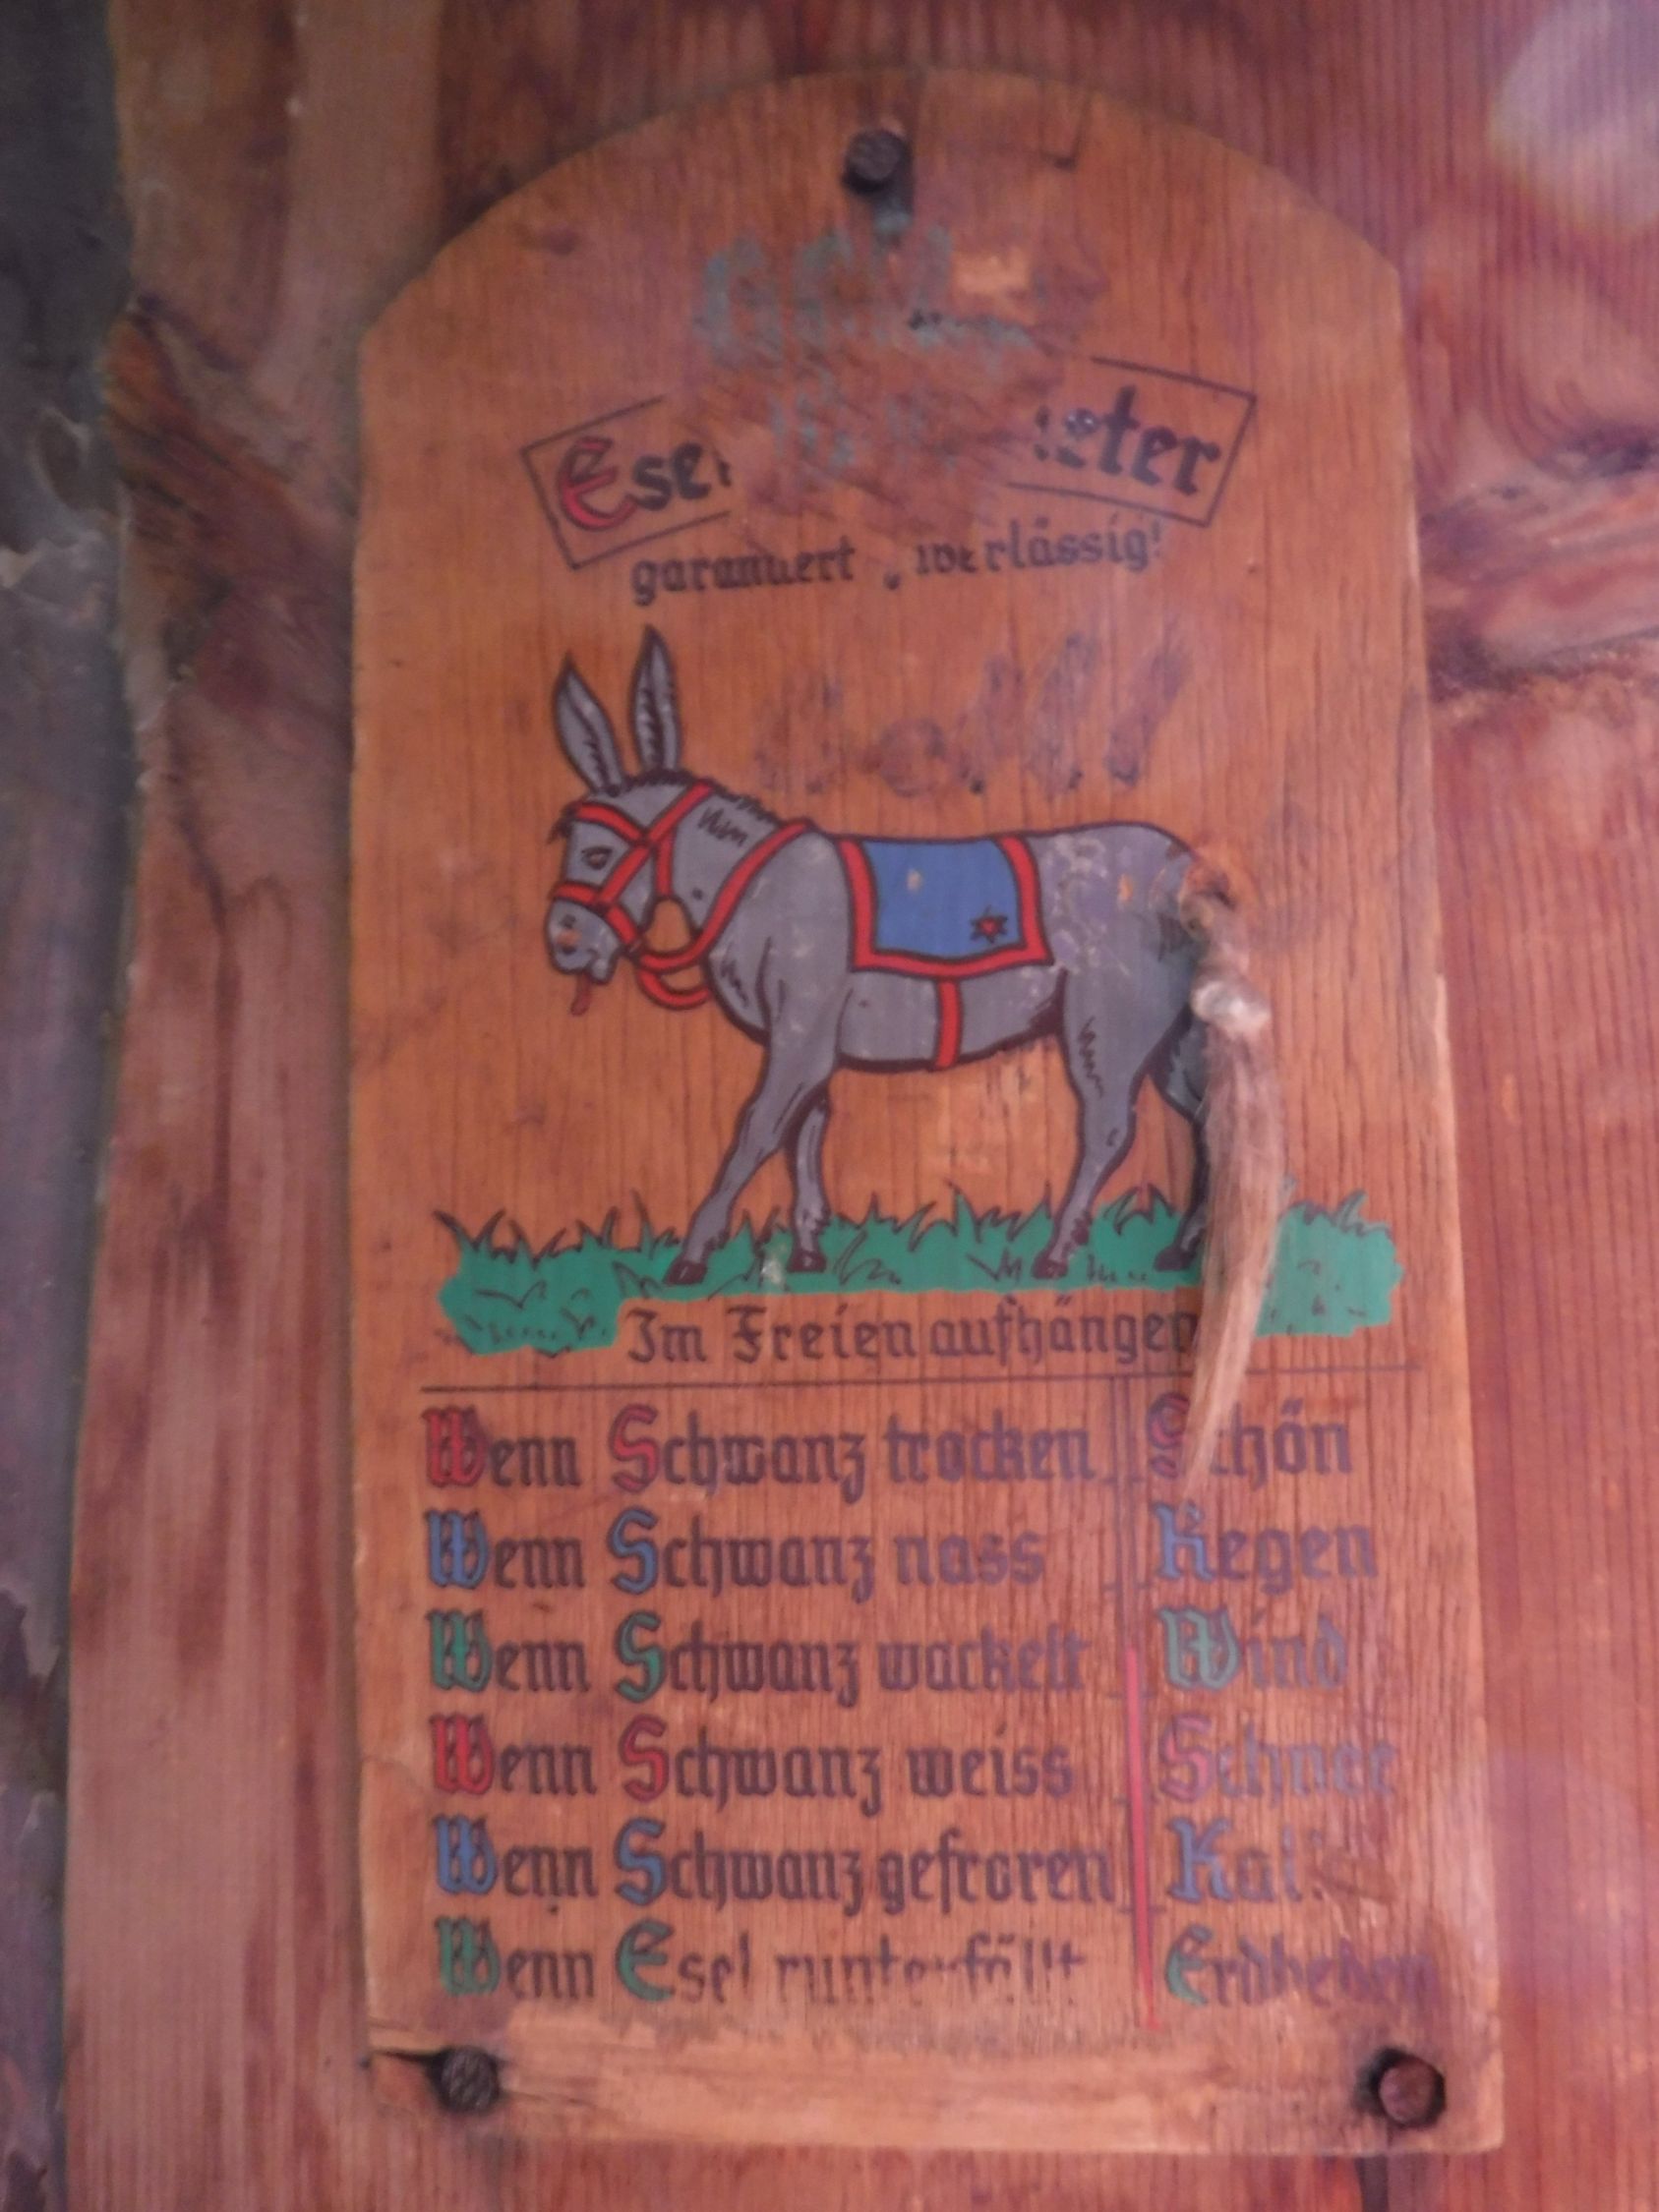 garantiert zuverlässig!
Im Freien aufhängen
Wenn Schwanz trocken Schön
Wenn Schwanz nass Regen
Wenn Schwanz wackelt Wind
Wenn Schwanz weiss Schnee
Wenn Schwanz gefroren Kalt
Wenn Esel runterfällt Erdbeben